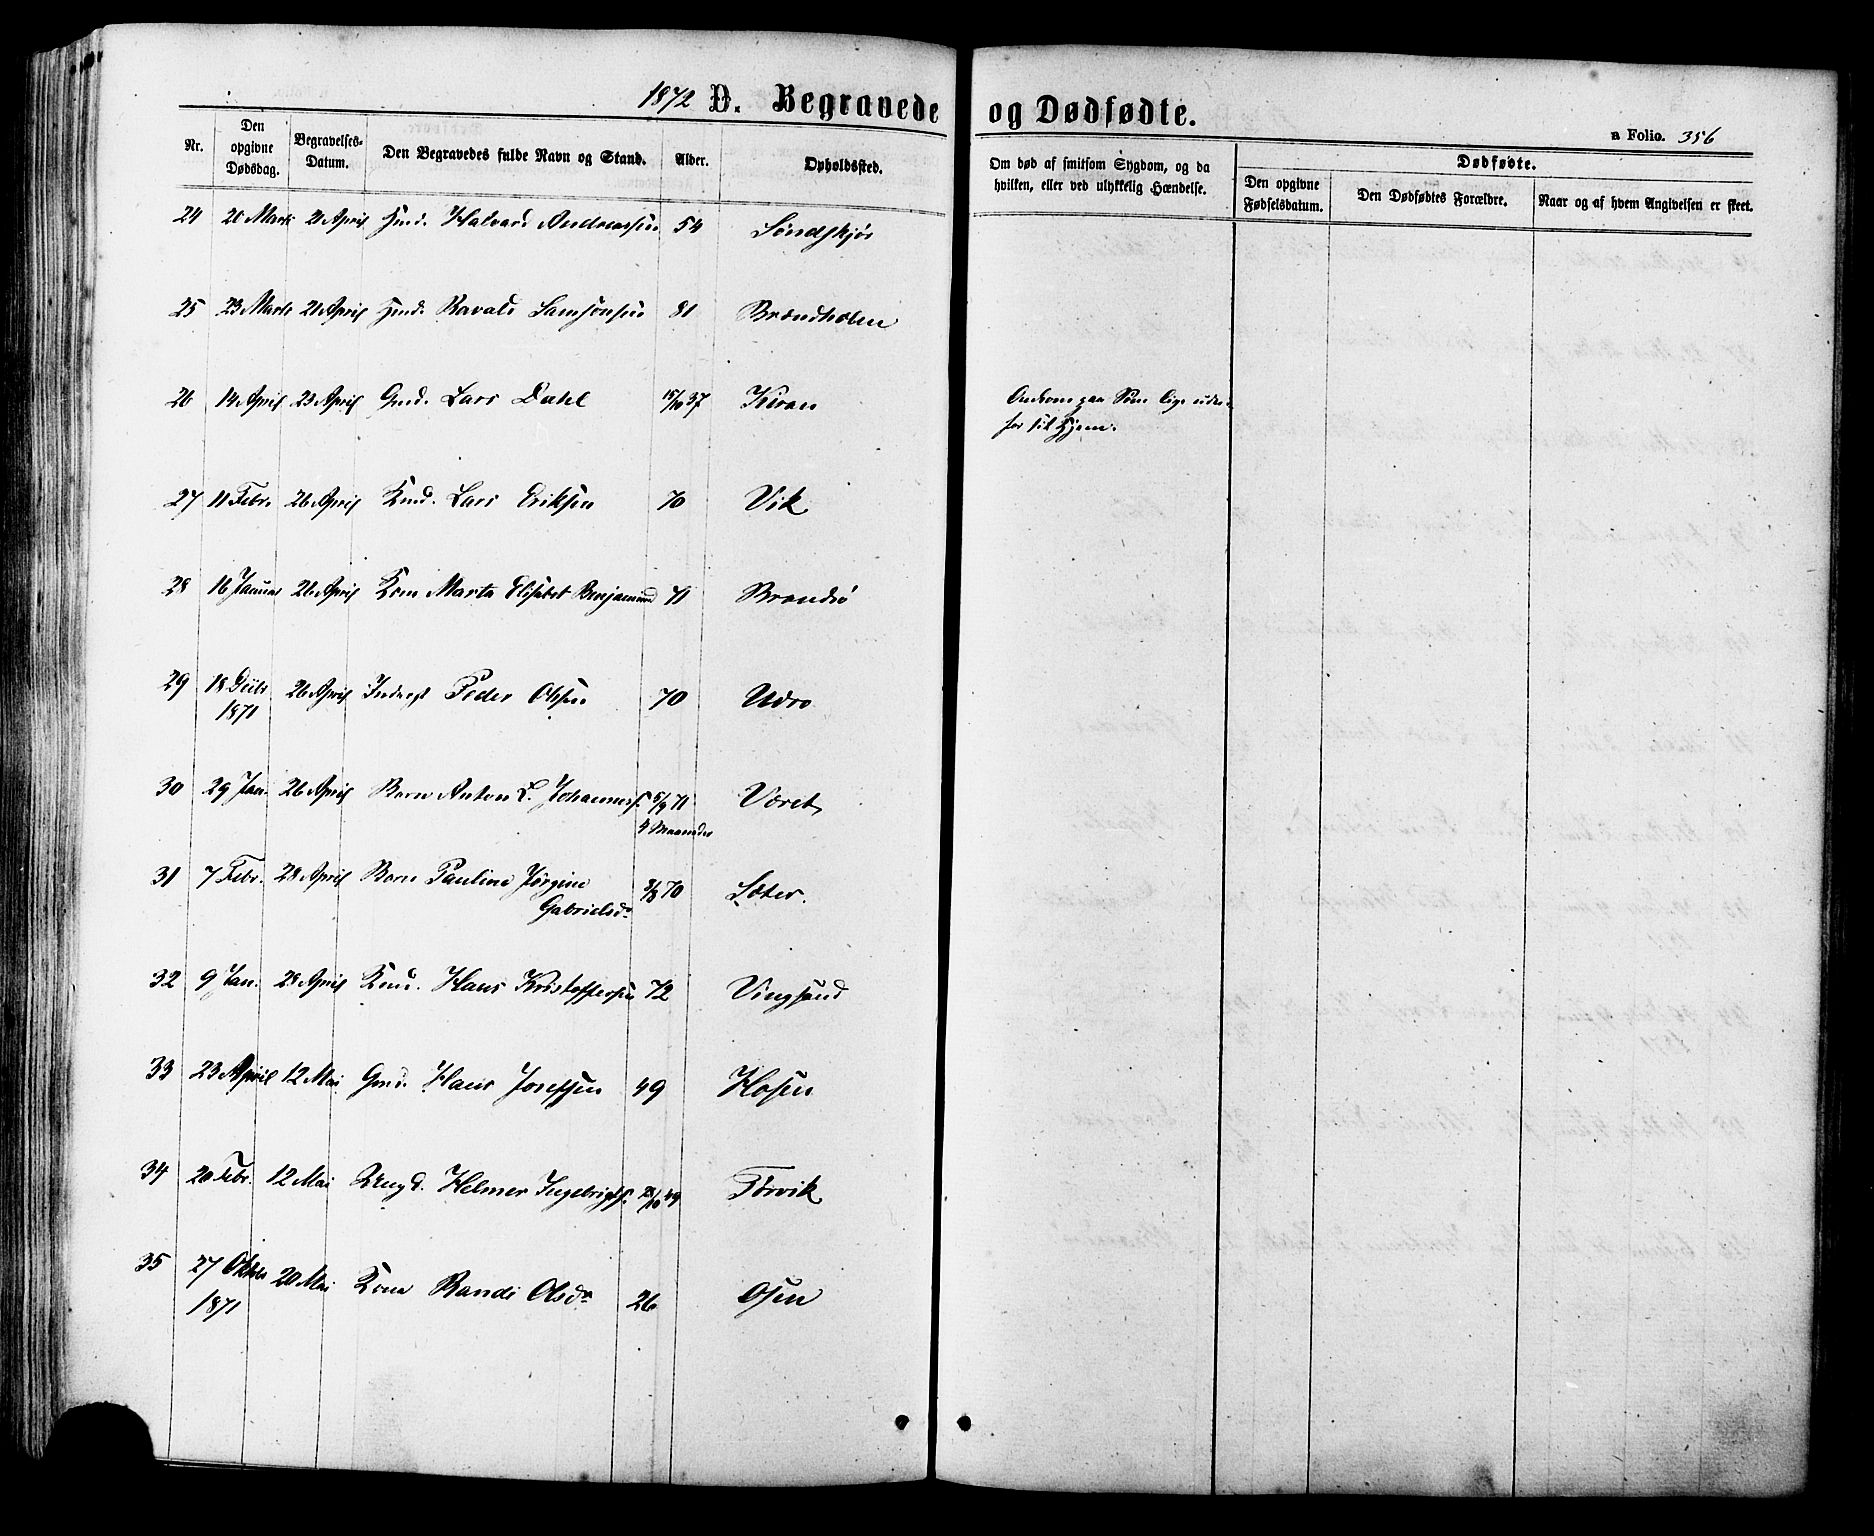 1872 D. Begravede og Dødfødte.
n Folio. 356
Nr. Den opgivne Dødsdag. Begravelses-Datum. Den Begravedes fulde Navn og Stand. Alder. Opholdssted. Om død af smitsom Sygdom, og da hvilken, eller ved ulykkelig Hændelse. Dødfødte. Den opgivne Fødselsdatum. Den Dødfødtes Forældre. Naar og af hvem Angivelsen er skeet.
24 20 Marts 21 April Gmd. Halvard Andreassen 54
25 23 Marts 21 April Gmd. Ravald Samsonsen 81
26 14 April 23 April Gmd. Lars Dahl 15/10 37 Kiran Omkom paa Søen lige uden-
for sit Hjem.
27 11 Febr. 26 April Kmd. Lars Eriksen 70 Vik
28 16 Januar 26 April Kone Marta Elisabet Benjaminsd 71 Brandsö
29 18 Decbr. 26 April Inderst Peder Olsen 70 Udro
1871
30 29 Jan. 26 April Barn Anton L. Johanness. 5/9 71 Våret
4 Maaneder
31 7 Febr. 28 April Barn Pauline Jørgine 70 Sæter.
Gabrielsd.
32 9 Jan. 28 April Kmd. Hans Kristoffersen 72 Vingsand
33 23 April 12 Mai Gmd. Hans Josefsen 49 Hosen
34 20 Febr. 12 Mai Ungd. Helmer Ingebrigts. 49 Tørvik
35 27 Oktbr 20 Mai Kone Randi Olsdr 26 Osen
1871